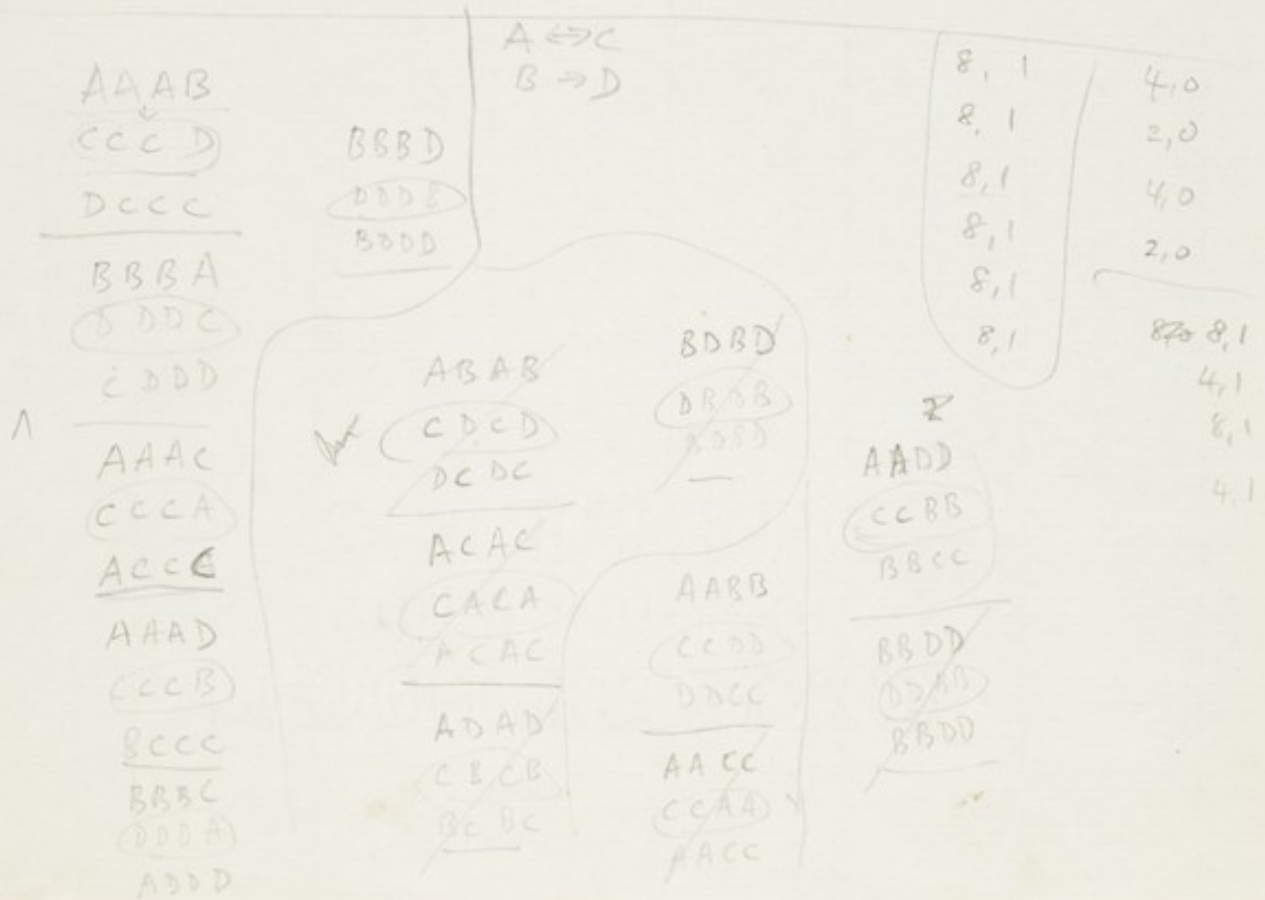 A ⇔ C
B ⇒ D
AAAB
CCCD
DCCC
BBBA
DDDC
CDDD
AAAC
CCCA
ACCC
AAAD
CCCB
BCCC
BBBC
DDDA
ADDD
BBBD
DDDB
BDDD
ABAB
CDCD
DCDC
ACAC
CACA
ACAC
ADAD
CBCB
BCBC
BDBD
DBDB
BDBD
AABB
CCDD
DDCC
AACC
CCAA
AACC
AADD
CCBB
BBCC
BBDD
DDBB
BBDD
8, 1
8, 1
8, 1
8, 1
8, 1
8, 1
4,0
2,0
4,0
2,0
8,1
4,1
8,1
4,1